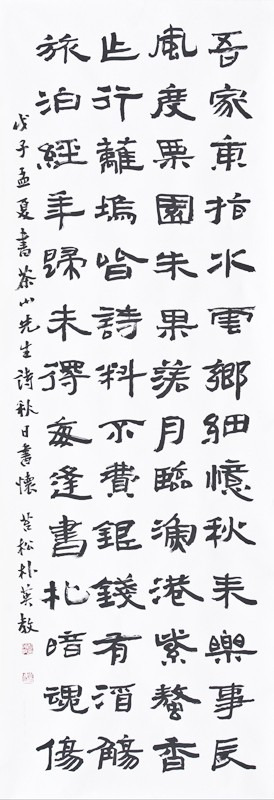 吾家東指水雲鄕細憶秋來樂事長
風度栗園朱果落月臨漁港紫螯香
乍行籬塢皆詩料不費銀錢有酒觴
旅泊經年歸未得每逢書札暗魂傷
戊子孟夏書茶山先生詩秋日書懷 苔松朴英敎